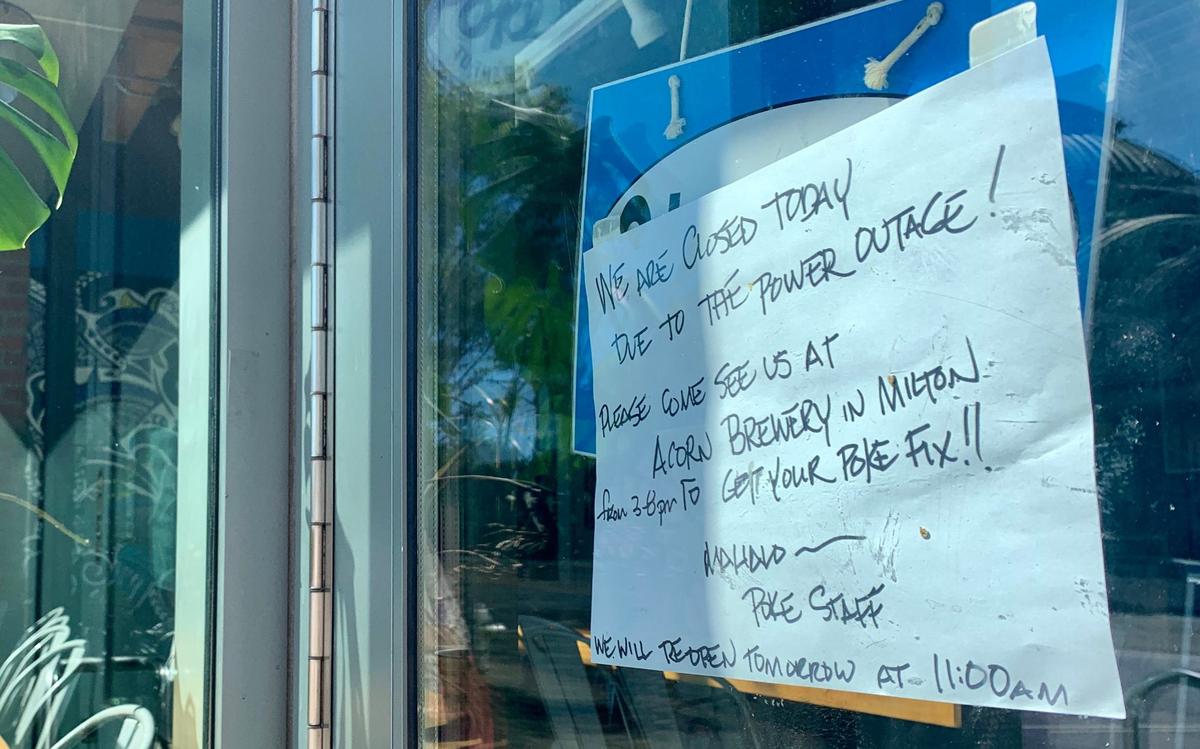 WE ARE CLOSED TODAY
DUE TO THE POWER OUTAGE!
PLEASE COME SEE US AT
ACORN BREWERY IN MILTON
from 3-8pm TO GET YOUR POKE FIX!!
MAHALO
POKE STAFF
WE WILL REOPEN TOMORROW AT 11:00AM